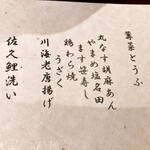 蓴菜とうふ
丸なす胡麻あん
やまめ塩名田
ます笹寿し
うざく
鶏わら焼
川海老唐揚げ
佐久鯉洗い